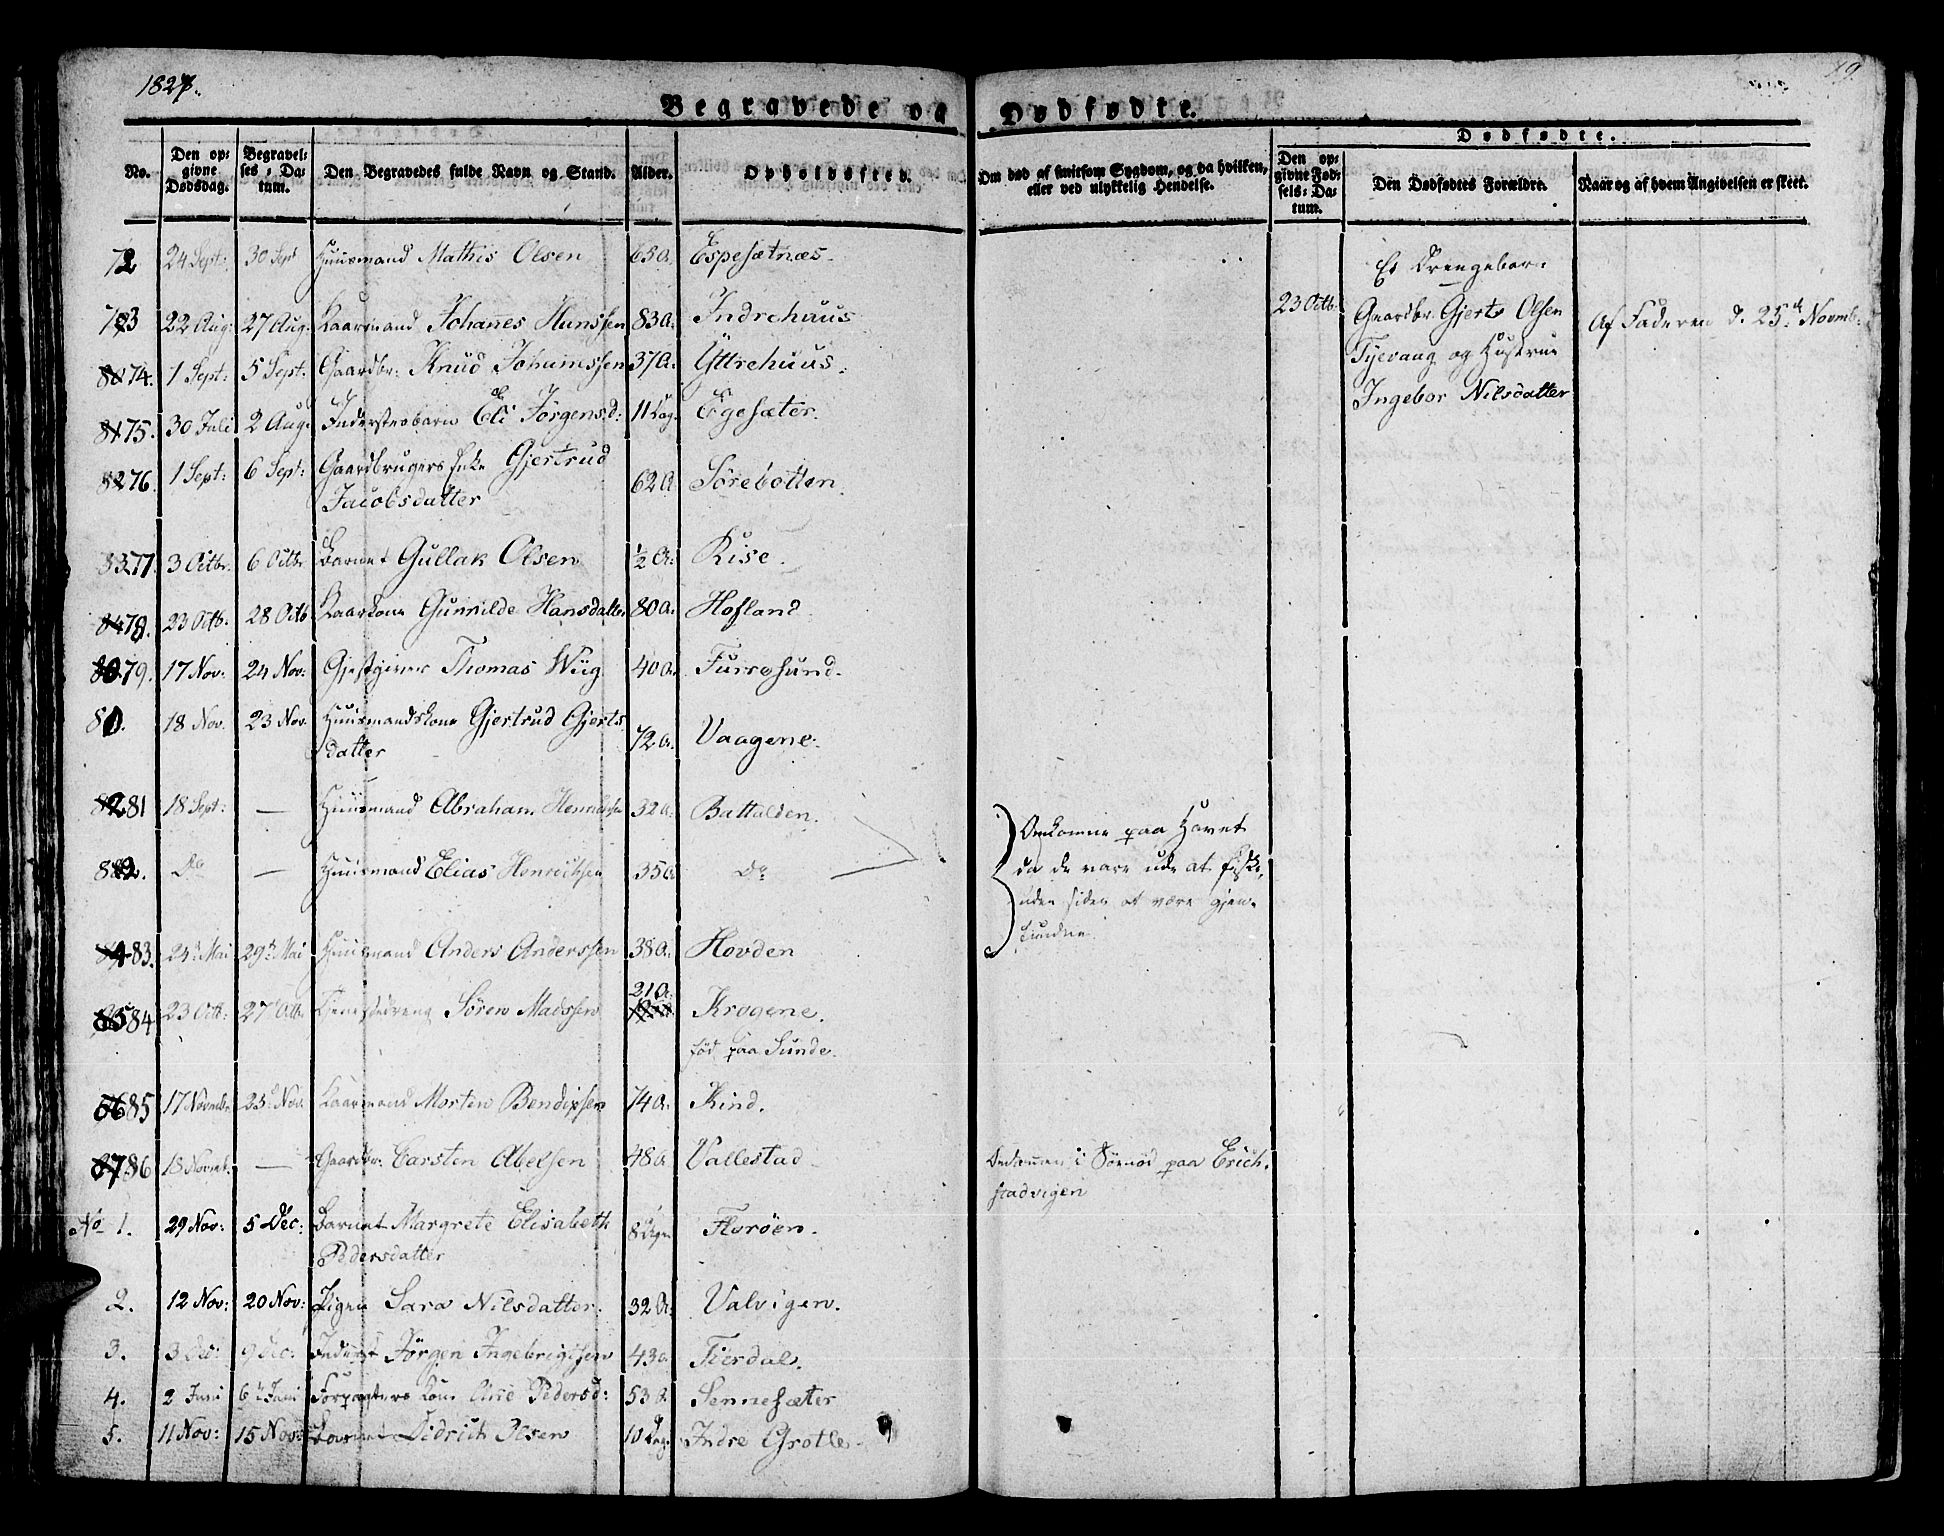 1827.
Begravede og Dødfødte.
Dødfødte.
No.
Den opgivne Dødsdag.
Begravelses-Datum.
Den Begravedes fulde Navn og Stand.
Alder.
Opholdssted.
Om død af smitsom Sygdom, og da hvilken, eller ved ulykkelig Hendelse.
Den opgivne Fødsels-Datum.
Den Dødfødtes Forældre.
Naar og af hvem Angivelsen er skeet.
72 24 Sept: 30 Sept Huusmand Mathis Olsen 65 A. Espesætnæs.
Et Drengebarn
23 Octb. Gaardbr. Gjert Olsen Af Faderen d. 25de Novmb.
Tyevang og Hustrue
Ingebor Nilsdatter
73 22 Aug: 27 Aug. Kaarmand Johannes Hanssen 83 A. Indrehuus
74. 1 Sept: 5 Sept. Gaardbr: Knud Johannessen 37 A. Yttrehuus.
75. 30 Juli 2 Aug. Inderstesbarn Eli Jörgensd: 11 Dag. Egesæter.
76. 1 Sept: 6 Sept: Gaardbrugers Enke Gjertrud
Jacobsdatter 62 A Sörebotten.
77. 3 Octbr. 6 Octbr Barnet Gullak Olsen ½ A. Rise.
78. 23 Octb. 28 Octb Kaarkone Gunnilde Hansdatter 80 A. Hofland.
79. 17 Nov: 24 Nov: Gjestgiver Thomas Wiig 40 A. Furresund.
80. 18 Nov. 23 Nov. Huusmandskone Gjertrud Gjerts
datter 72 A. Vaagene.
81 18 Sept: — Huusmand Abraham Henrichsen 32 A. Battalden.
Omkomne paa Havet
da de vare ude at fiske,
uden siden at være gjen-
fundne
82. Do — Huusmand Elias Henrichsen 35 A. Do
83. 24 Mai 29 Mai Huusmand Anders Anderssen 38 A. Hovden
84 23 Octb: 27 Octb. Tjenestedreng Sören Madssen 21 A. Krogene.
fød paa Sunde.
85 17 Novmbr 25 Nov. Kaarmand Morten Bendixsen 74 A. Kind.
86 18 Novmb. — Gaardbr. Carsten Abelsen 48 A Vallestad
Omkommen i Söenöd paa Erich-
stadvigen
No 1. 29 Nov: 5 Dec: Barnet Margrete Elisabeth
Pedersdatter 8 Dage Florøen.
2. 12 Nov: 20 Nov: Pigen Sara Nilsdatter. 32 A. Valvigen.
3. 3 Dec: 9 Dec: Inderst Jörgen Ingebrigtsen 43 A. Tierdal.
4. 2 Juni 6 Juni Forpagters Kone Ane Pedersd: 53 A. Sennesæter
5. 11 Nov: 15 Nov: Barnet Didrich Olsen 10 Dag. Indre Grotle.